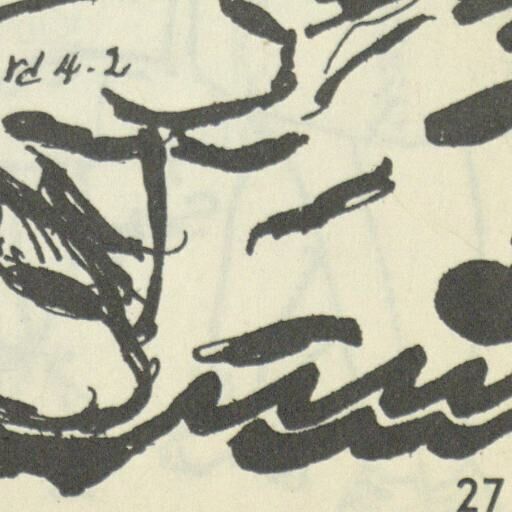 rd 4.2
27